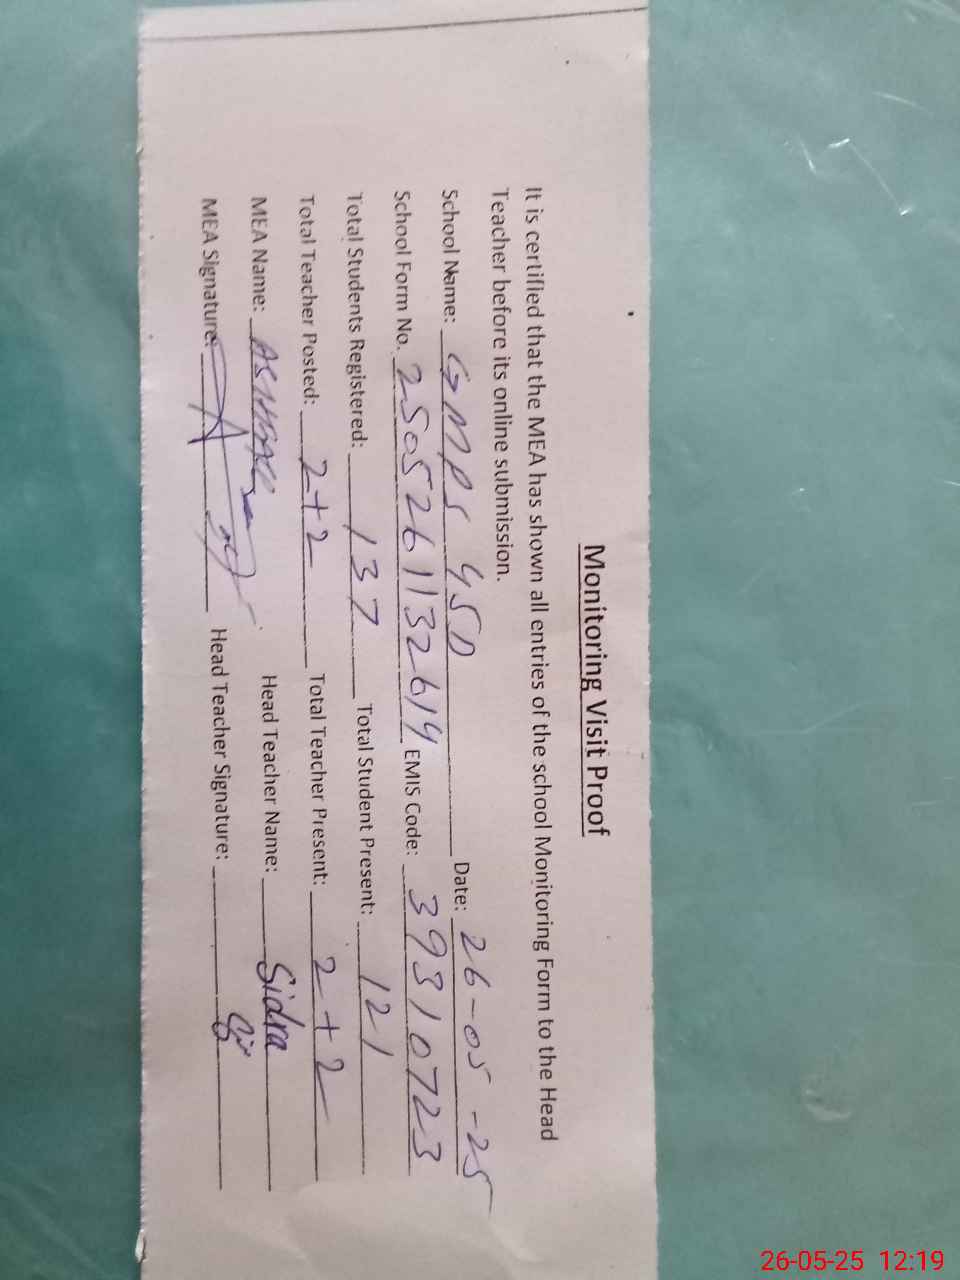 Monitoring Visit Proof
It is certified that the MEA has shown all entries of the school Monitoring Form to the Head
Teacher before its online submission.
School Name: GMPS 45D Date: 26-05-25
School Form No. 2505261132614 EMIS Code: 39310723
Total Students Registered: 137 Total Student Present: 121
Total Teacher Posted: 2+2 Total Teacher Present: 2+2
MEA Name: Head Teacher Name: Sidra
MEA Signature: Head Teacher Signature:
26-05-25 12:19